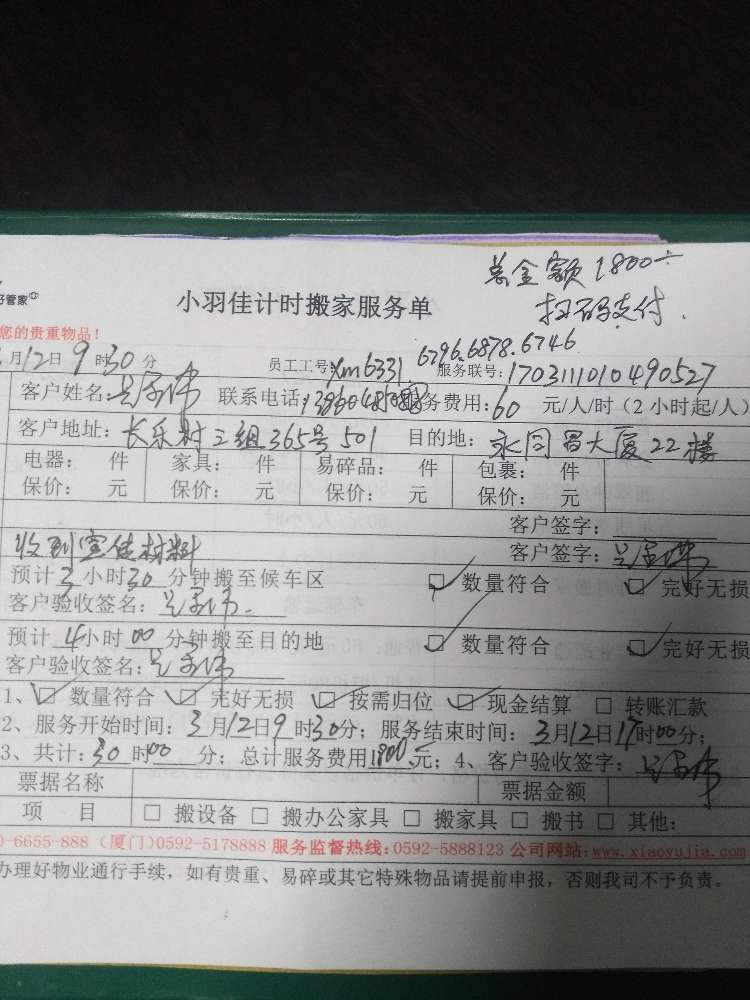 总金额1800元
扫码支付.
好管家
小羽佳计时搬家服务单
您的贵重物品!
月12日9时30分 员工工号:xm6331 6796.6878.6746 服务联号:1703111010490527
客户姓名: 联系电话: 务费用:60元/人/时(2小时起/人)
客户地址:长乐村三组365号501 目的地:永同昌大厦22楼
电器: 件 家具: 件 易碎品: 件 包裹: 件
保价: 元 保价: 元 保价: 元 保价: 元
客户签字:
收到宣传材料 客户签字:
预计3小时30分钟搬至候车区 ☑数量符合 ☑完好无损
客户验收签名:
预计4小时00分钟搬至目的地 ☑数量符合 ☑完好无损
客户验收签名:
1、☑数量符合 ☑完好无损 ☑按需归位 ☑现金结算 □转账汇款
2、服务开始时间:3月12日9时30分;服务结束时间:3月12日17时00分;
3、共计:30时00分;总计服务费用1800元;4、客户验收签字:
票据名称 票据金额
项 目 □搬设备 □搬办公家具 □搬家具 □搬书 □其他:
0-6655-888 (厦门)0592-5178888 服务监督热线:0592-5888123 公司网站:www.xiaoyujia.com
办理好物业通行手续,如有贵重、易碎或其它特殊物品请提前申报,否则我司不予负责。